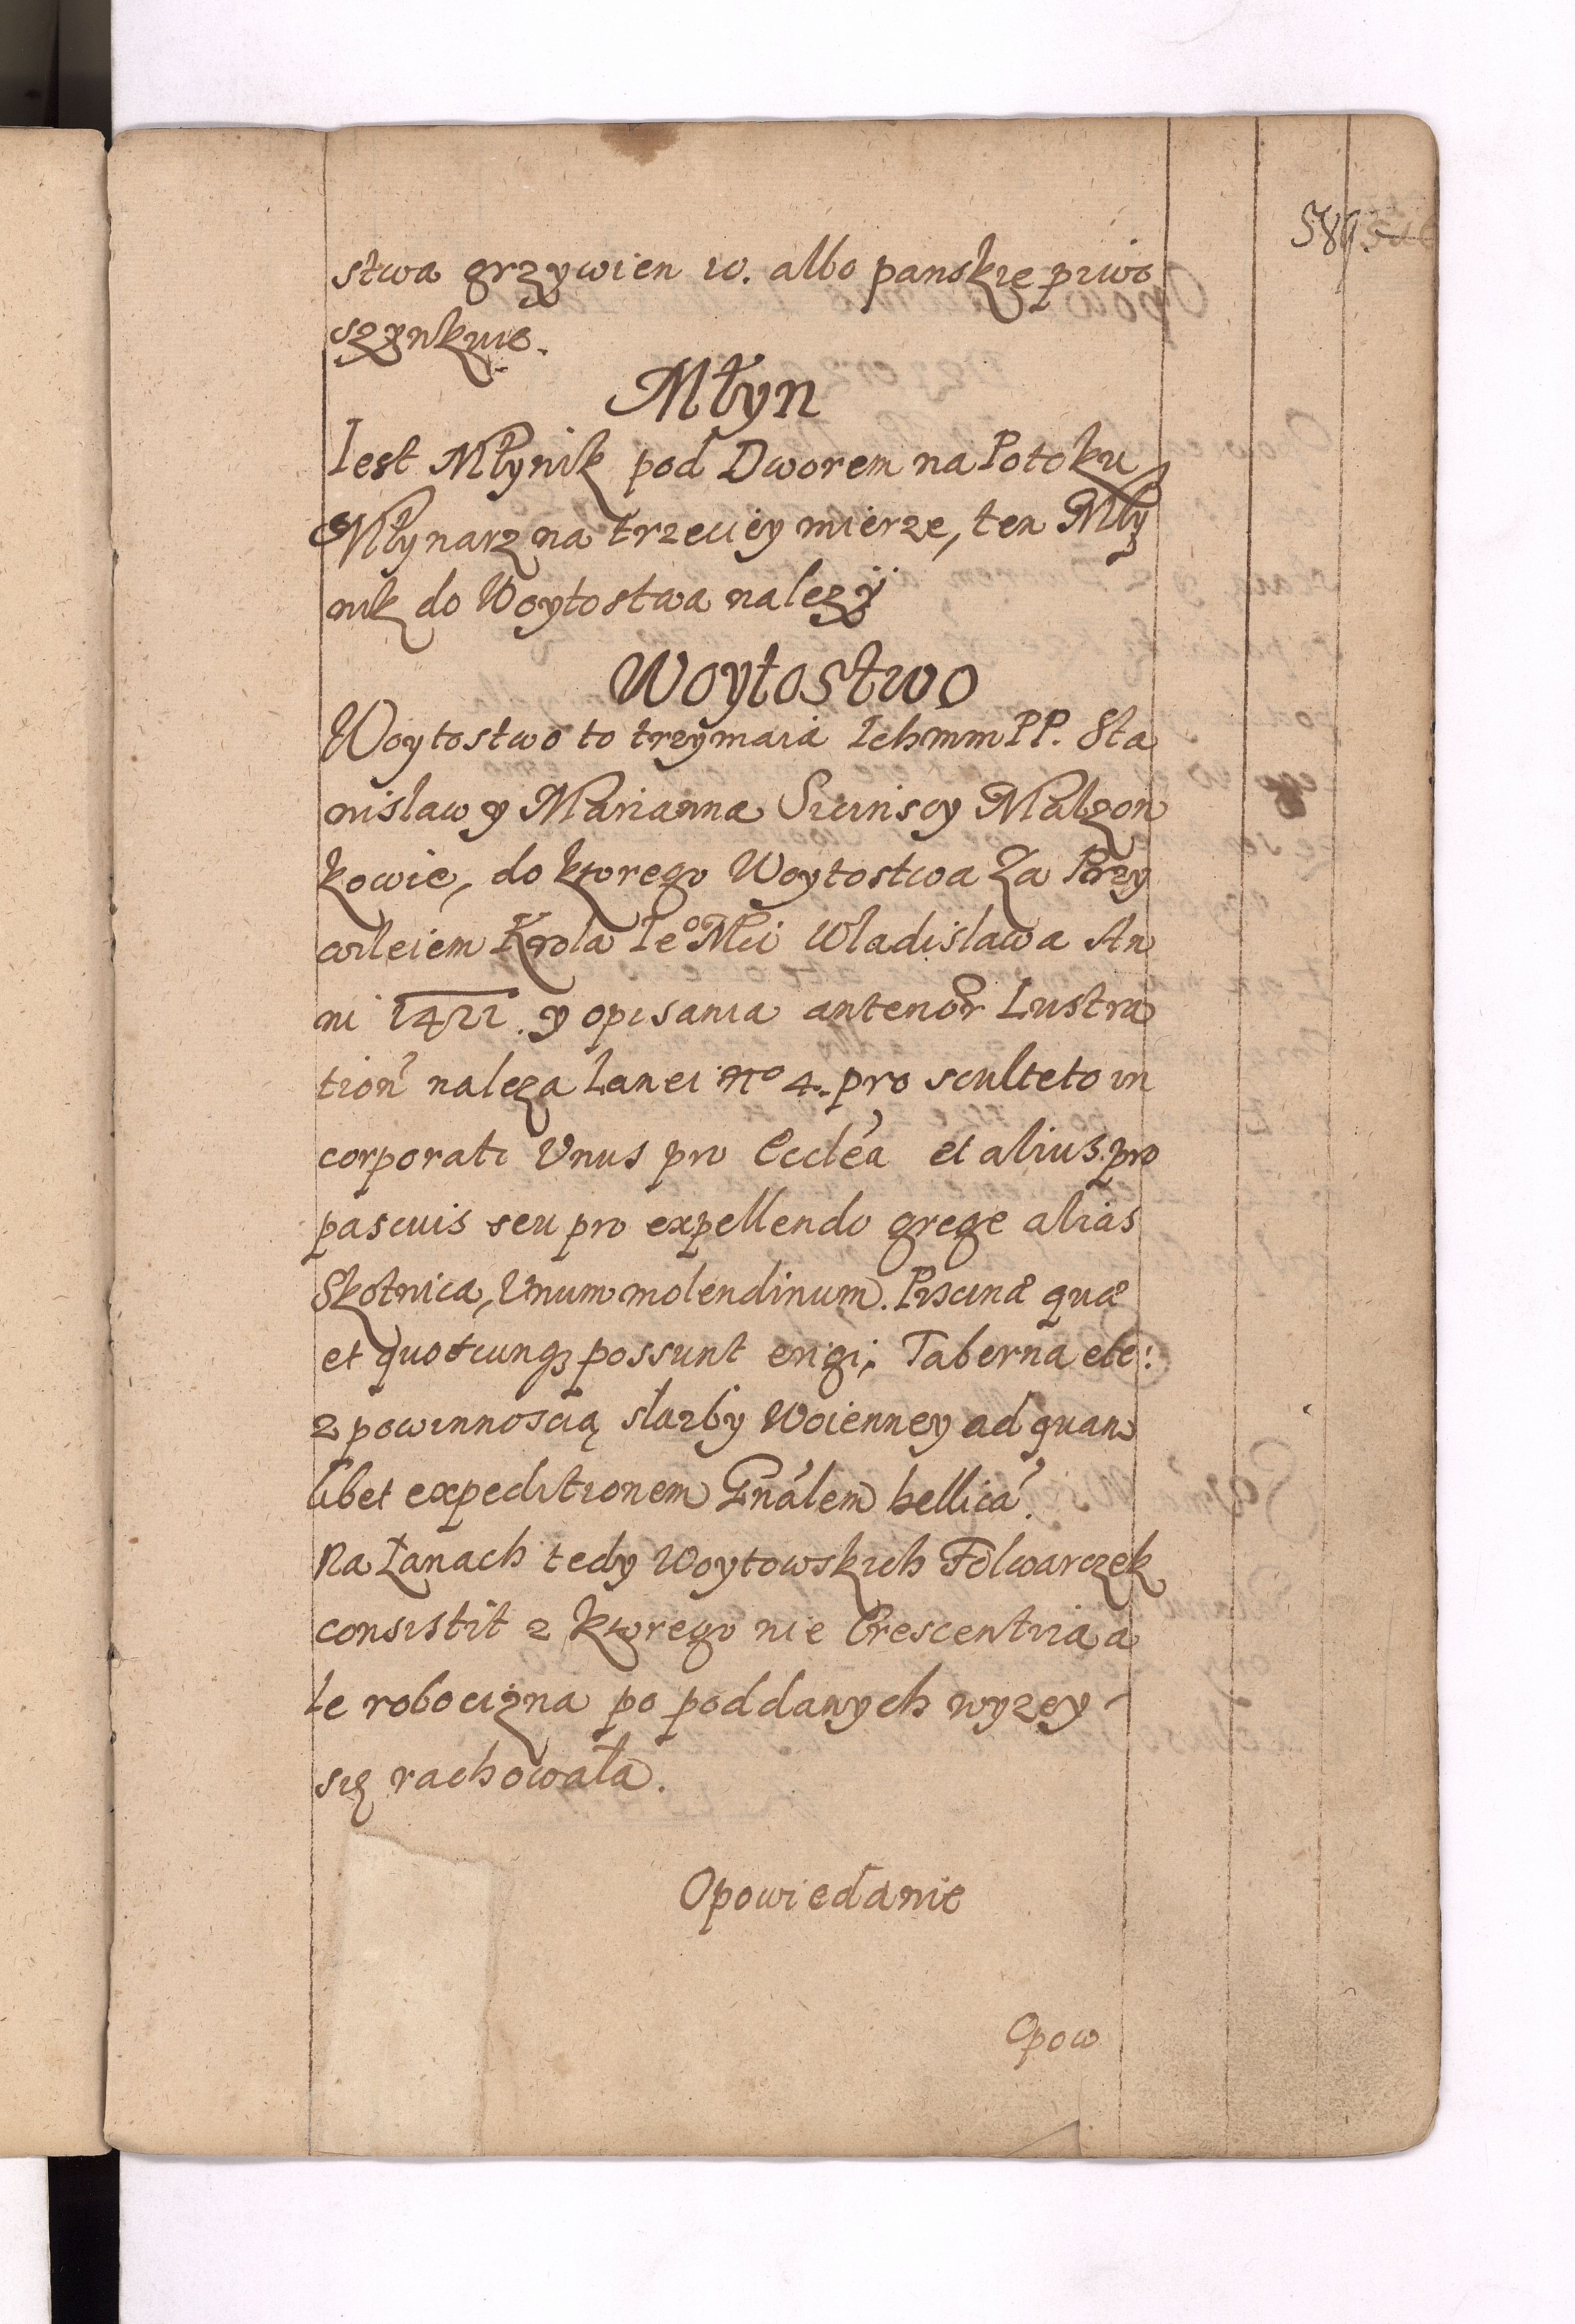 589
stwa grzywien 10. albo panskie piwo
szynkuie.
Młyn
Iest Młynik pod Dworem na Potoku
Młynarz na trzeciey mierze, ten Mły
nik do Woytostwa nalezÿ
Woytostwo
Woytostwo to trzymaią Ichmm PP. Sta
nislaw y Marianna Sicinscy Malzon
kowie, do ktorego Woytostwa Za Przy
wileiem Krola Ieo Mci Wladislawa An
ni 1421. y opisania anterior Lustra
tion nalezą Lanei No 4. pro sculteto in
corporati Vnus pro Eccléa et alius pro
pascuis seu pro expellendo grege alias
Skotnica, Vnum molendinum. Piscinæ quæ
et quotcunq; possunt erigi. Taberna etc:
z powinnoscią służby Woienney ad quam
libet expeditionem Gnálem bellicá.
Na Łanach tedy Woytowskich Folwarczek
consistit z ktorego nie Crescentiia a
le robocizna po poddanych wyzey
się rachowała.
Opowiedanie
Opow